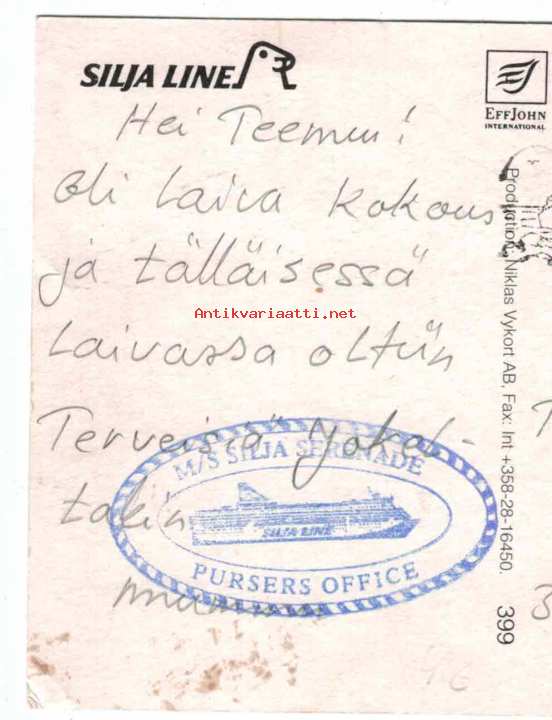 SILJA LINE
EFFJOHN
INTERNATIONAL
Hei Teemu!
Oli laiva kokous
ja tälläisessä
Laivassa oltiin
Terveisiä
takin
mummu
Antikvariaatti.net
M/S SILJA SERENADE
SILJA LINE
PURSERS OFFICE
Production: Niklas Vykort AB, Fax: Int +358-28-16450.
399
T
3